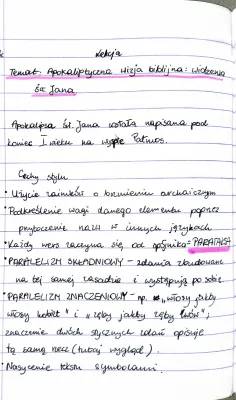 Lekcja
Temat: Apokaliptyczna wizja biblijna: widzenia
św. Jana
Apokalipsa św. Jana została napisana pod
koniec I wieku na wyspie Patmos.
Cechy stylu
• Użycie zaimków o brzmieniu archaicznym
• Podkreślenie wagi danego elementu poprzez
przytoczenie nazw w innych językach
• Każdy wers zaczyna się od spójnika = PARATAKSA
• PARALELIZM SKŁADNIOWY - zdania zbudowane
na tej samej zasadzie i występują po sobie
• PARALELIZM ZNACZENIOWY - np. „włosy jakby
włosy kobiet" i „zęby jakby zęby lwów";
znaczenie dwóch stycznych zdań opisuje
tą samą rzecz (tutaj wygląd).
• Nasycenie tekstu symbolami.